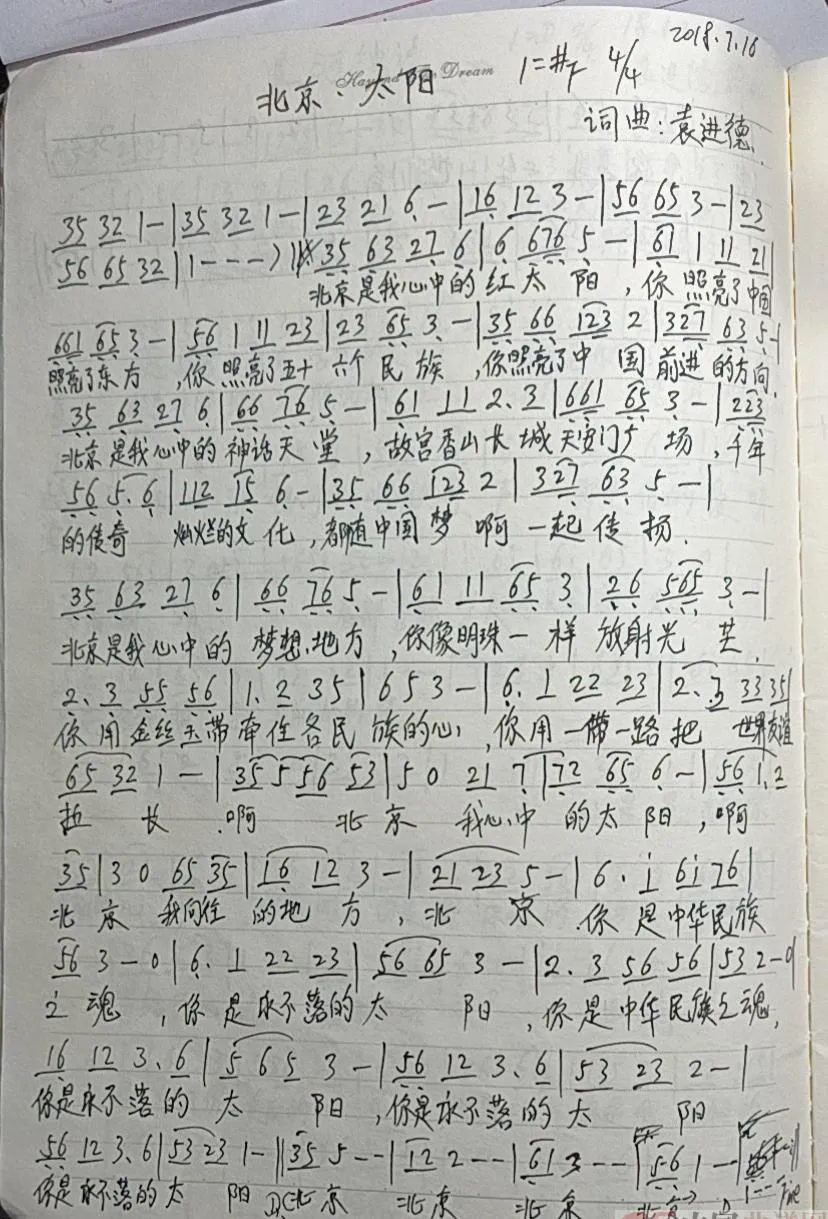 2018.7.16
北京·太阳 Dream 1=#F 4/4
词曲:袁进德
35 32 1 - | 35 32 1 - | 23 21 6 - | 16 12 3 - | 56 65 3 - | 23
56 65 32 | 1 - - - ) | 35 63 27 6 | 6 676 5 - | 61 1 11 21 |
北京是我心中的红太阳,你照亮了中国
661 65 3 - | 56 1 11 23 | 23 65 3 - | 35 66 123 2 | 327 63 5 - |
照亮了东方,你照亮了五十六个民族,你照亮了中国前进的方向.
35 63 27 6 | 66 76 5 - | 61 11 2.3 | 661 65 3 - | 223
北京是我心中的神话天堂,故宫香山长城天安门广场,千年
56 5.6 | 112 15 6 - | 35 66 123 2 | 327 63 5 - |
的传奇 灿烂的文化,都随中国梦啊一起传扬.
35 63 27 6 | 66 76 5 - | 61 11 65 3 | 26 565 3 - |
北京是我心中的梦想地方,你像明珠一样放射光芒.
2.3 55 56 | 1.2 35 | 6 5 3 - | 6.1 22 23 | 2.3 33 35 |
你用金丝玉带牵住各民族的心,你用一带一路把世界友谊
65 32 1 - | 35 5 56 53 | 5 0 21 7 | 72 65 6 - | 56 1.2
拉长.啊 北京 我心中的太阳,啊
35 | 3 0 65 35 | 16 12 3 - | 21 23 5 - | 6. i 6i 76 |
北京 我向往的地方,北京.你是中华民族
56 3 - 0 | 6.1 22 23 | 56 65 3 - | 2.3 56 56 | 53 2 - 0 |
之魂,你是永不落的太阳,你是中华民族之魂,
16 12 3.6 | 5 6 5 3 - | 56 12 3.6 | 53 23 2 - |
你是永不落的太阳,你是永不落的太阳
56 12 3.6 | 53 23 1 - || 35 5 - - | 12 2 - - | 61 3 - - | 56 1 - |
你是永不落的太阳 D.C 北京 北京 北京 北京 Fine